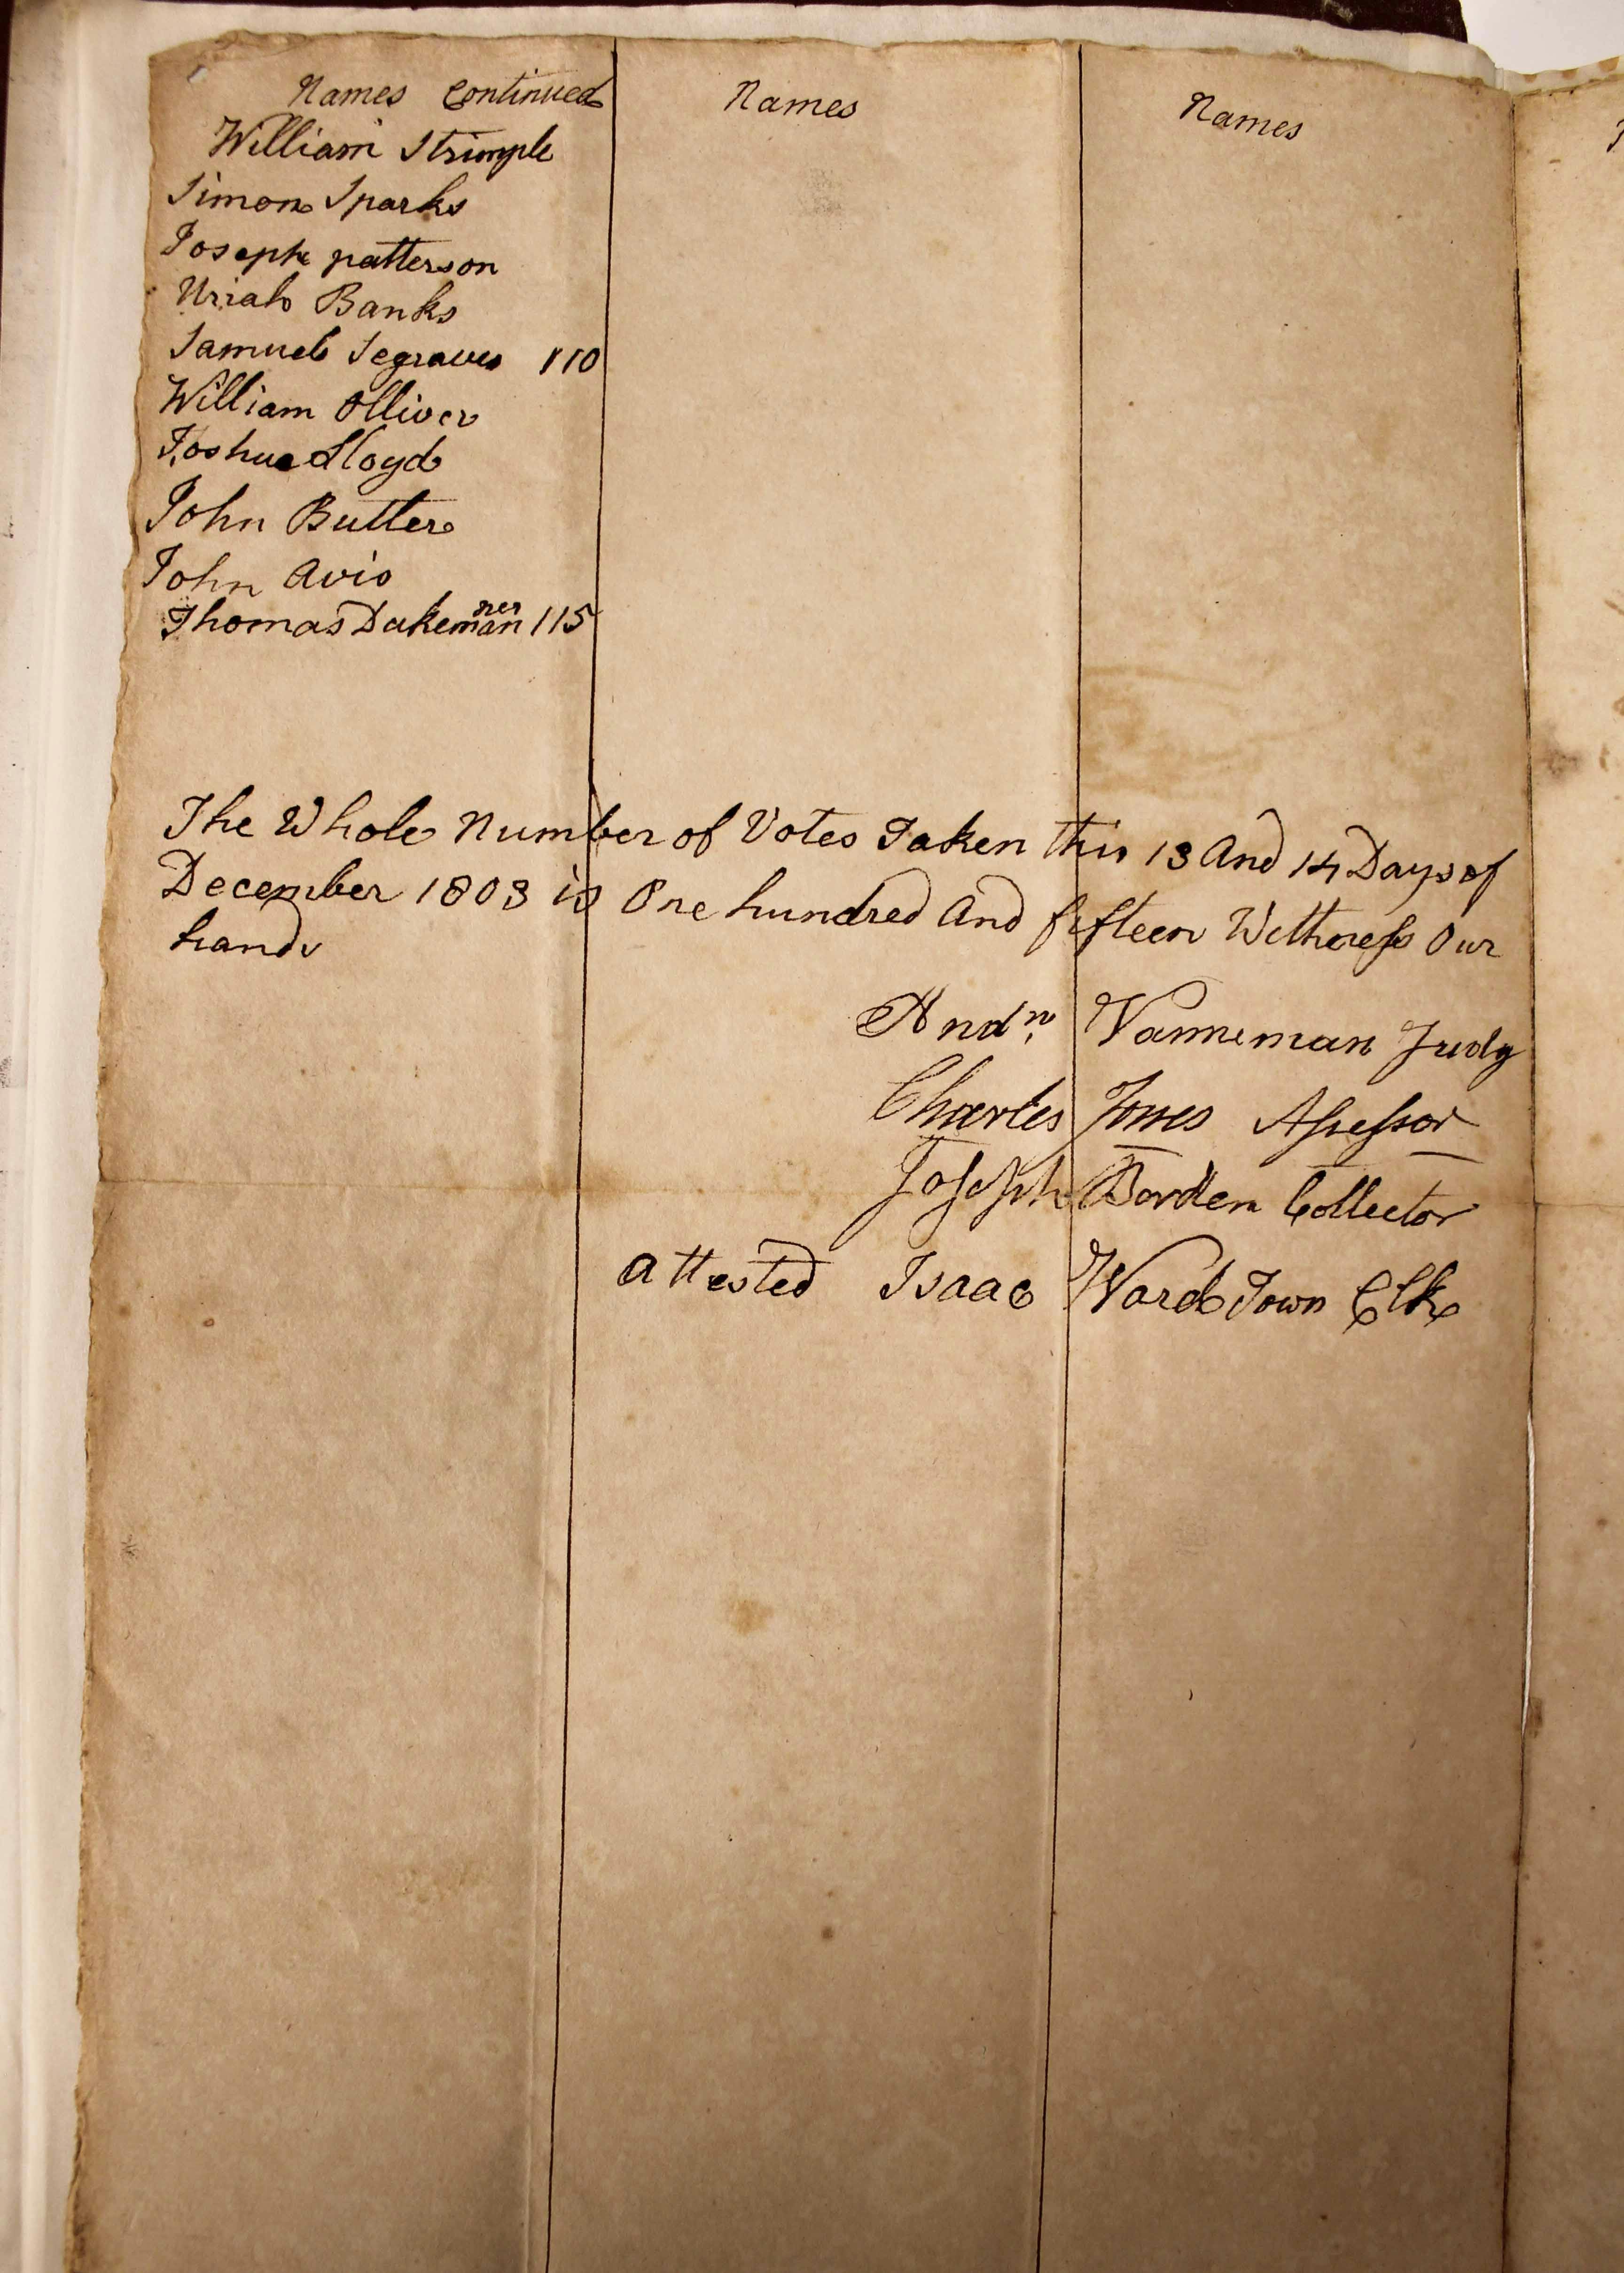 Names Continued
Names
Names
William Strimple
Simon Sparks
Joseph patterson
Uriah Banks
Samuel Segraves 110
William Olliver
Joshua Lloyd
John Butler
John Avis
ner
Thomas Dakeman 115
The Whole Number of Votes Taken this 13 And 14 Days of
December 1803 is One hundred And fifteen Wittness Our
hands
Andw. Vanneman Judg
Charles Jones Assessor
Joseph Borden Collector
attested Isaac Ward Town Clk